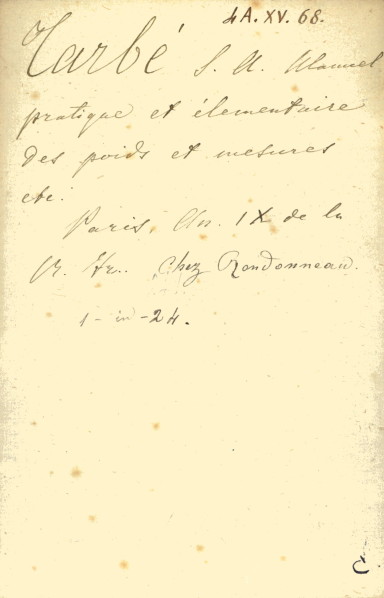 4A. XV. 68.
Tarbé S. A. Manuel
pratique et élementaire
des poids et mesures
etc.
Paris, An. IX de la
R. Fr. Chez Rondonneau.
1 - in - 24.
C.